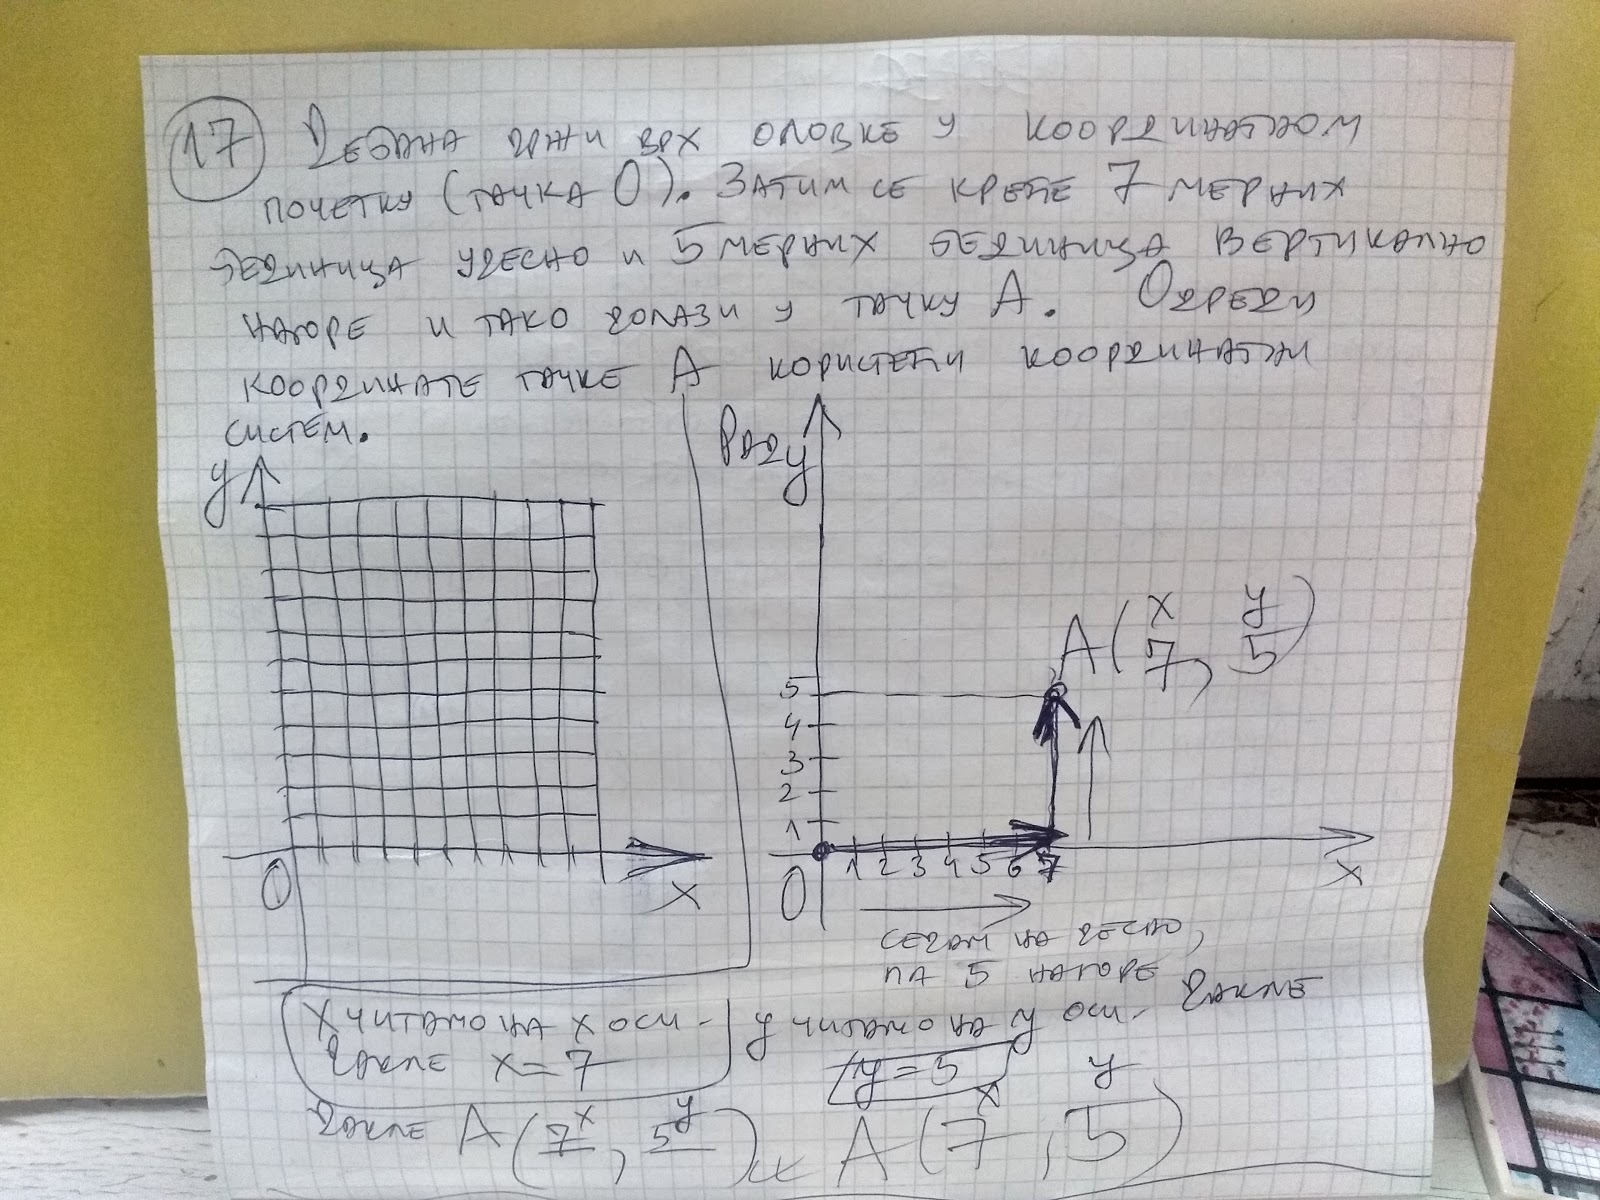 17 Дејана држи врх оловке у координатном
почетку (тачка О). Затим се креће 7 мерних
јединица удесно и 5 мерних јединица вертикално
нагоре и тако долази у тачку А. Одреди
координате тачке А користећи координатни
систем.
y
О
x
Рад
y
5
4
3
2
1
О
1 2 3 4 5 6 7
x
А(7, 5)
x y
седам на десно,
па 5 нагоре
x читамо на x оси -
дакле x = 7
y читамо на y оси - дакле
y = 5
x y
дакле А(7, 5)
x y
А(7, 5)